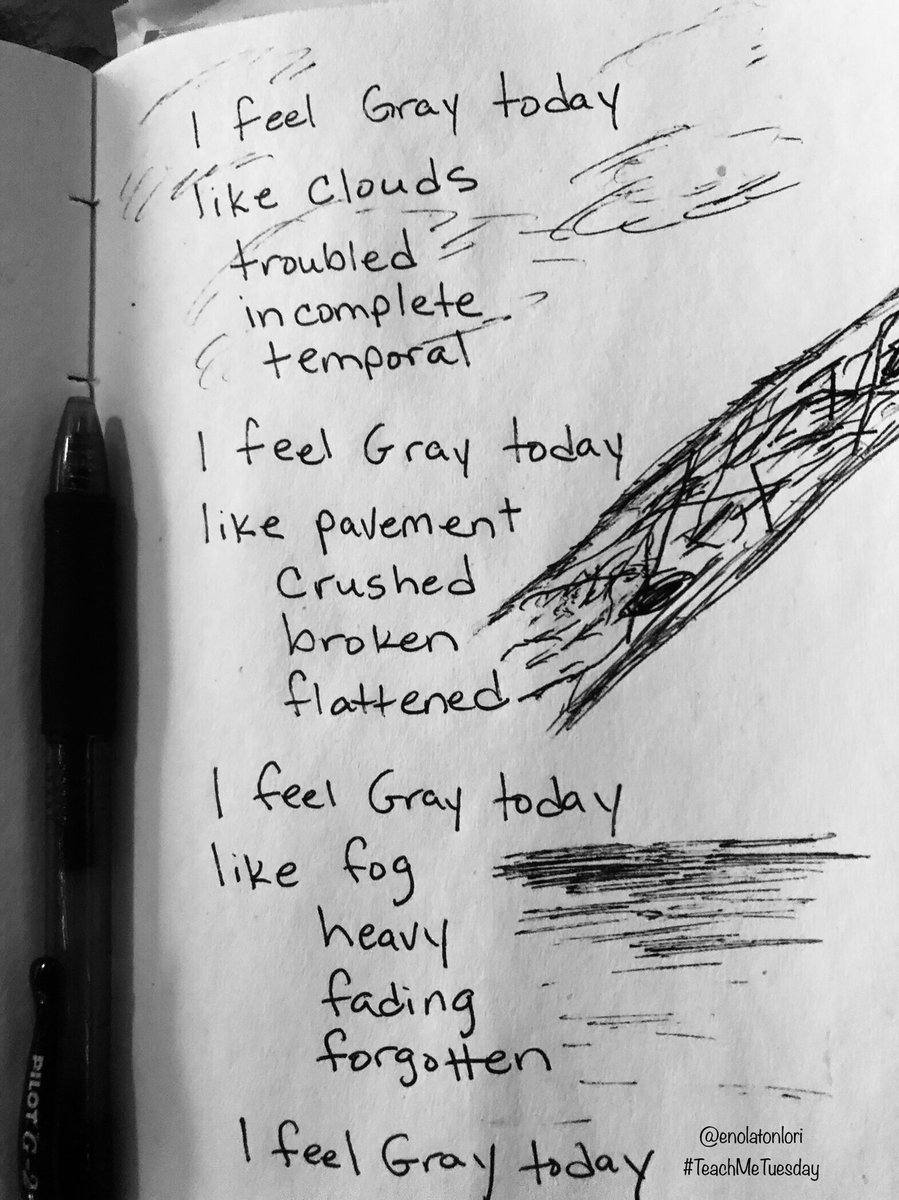 I feel Gray today
like Clouds
troubled
incomplete
temporal
I feel Gray today
like pavement
Crushed
broken
flattened
I feel Gray today
like fog
heavy
fading
forgotten
I feel Gray today
@enolatonlori
#TeachMeTuesday
PILOT G-2